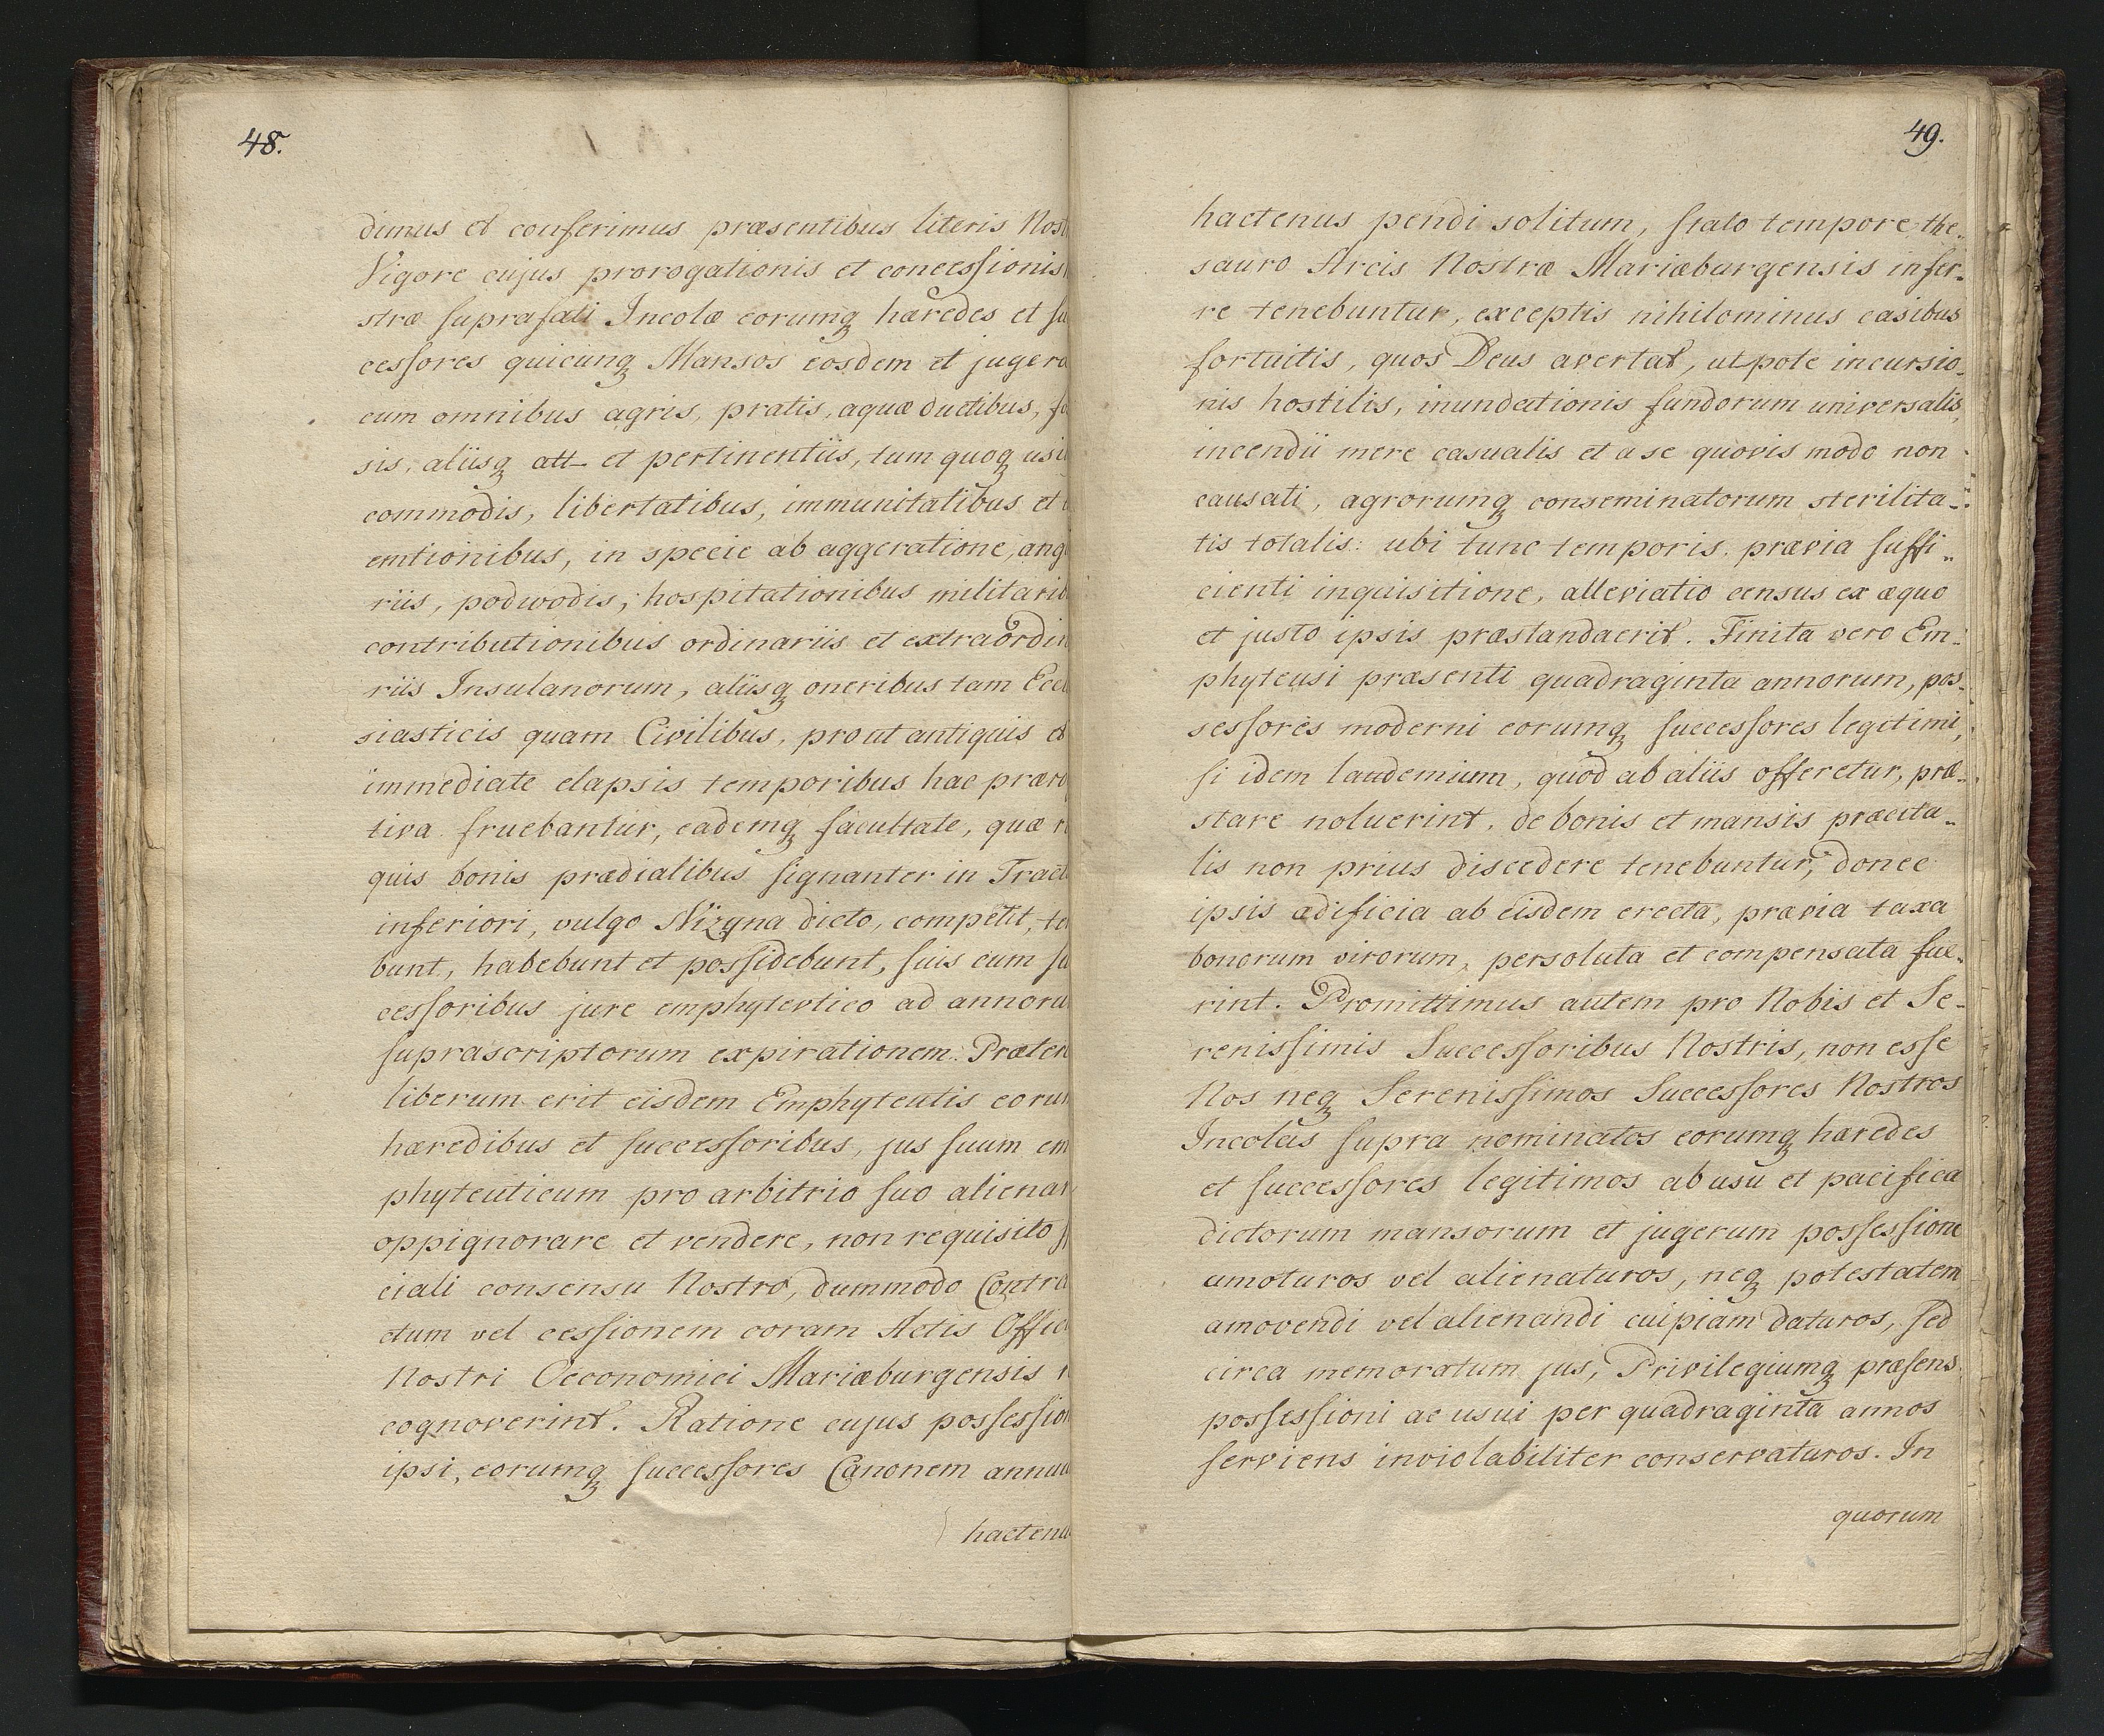 48.
dimus et conferimus præsentibus literis Nost
Vigore cujus prorogationis et concessionis
stræ suprafati Incolæ eorumq hæredes et su
cessores quicunq Mansos eosdem et jugera
cum omnibus agris, pratis, aquæ ductibus, fo
sis, aliisq att- et pertinentiis, tum quoq usi
commodis, libertatibus, immunitatibus et
emtionibus, in specie ab aggeratione, anga
riis, podwodis, hospitationibus militarib
contributionibus ordinariis et extraordin
riis Insulanorum, aliisq oneribus tam Eccl
siasticis quam Civilibus, prout antiquis et
immediate elapsis temporibus hac præro
tiva fruebantur, eademq facultate, quæ re
quis bonis prædialibus signanter in Tract
inferiori, vulgo Nizyna dicto, competit, te
bunt, habebunt et possidebunt, suis cum su
cessoribus jure emphytevtico ad annoru
suprascriptorum expirationem. Præter
liberum erit eisdem Emphyteutis eorum
hæredibus et successoribus, jus suum em
phyteuticum pro arbitrio suo alienar
oppignorare et vendere, non requisito s
ciali consensu Nostro, dummodo Contra
ctum vel cessionem coram Actis Offici
Nostri Oeconomici Mariæburgensis r
cognoverint. Ratione cujus possession
ipsi, eorumq successores Canonem annuu
hactenu
49.
hactenus pendi solitum, stato tempore the„
sauro Arcis Nostræ Mariæburgensis infer„
re tenebuntur, exceptis nihilominus casibus
fortuitis, quos Deus avertat, utpote incursio„
nis hostilis, inundationis fundorum universalis,
incendii mere casualis et a se quovis modo non
causati, agrorumq conseminatorum sterilita„
tis totalis: ubi tunc temporis, prævia suffi„
cienti inquisitione, alleviatio census ex æquo
et justo ipsis præstanda erit. Finita vero Em„
phyteusi præsenti quadraginta annorum, pos„
sessores moderni eorumq successores legitimi,
si idem laudemium, quod ab aliis offeretur, præ„
stare noluerint, de bonis et mansis præcita„
tis non prius discedere tenebuntur, donec
ipsis ædificia ab eisdem erecta, prævia taxa
bonorum virorum, persoluta et compensata fue„
rint. Promittimus autem pro Nobis et Se„
renissimis Successoribus Nostris, non esse
Nos neq Serenissimos Successores Nostros
Incolas supra nominatos eorumq hæredes
et successores legitimos ab usu et pacifica
dictorum mansorum et jugerum possessione
amoturos vel alienaturos, neq potestatem
amovendi vel alienandi cuipiam daturos, sed
circa memoratum jus, Privilegiumq præsens
possessioni ac usui per quadraginta annos
serviens inviolabiliter conservaturos. In
quorum